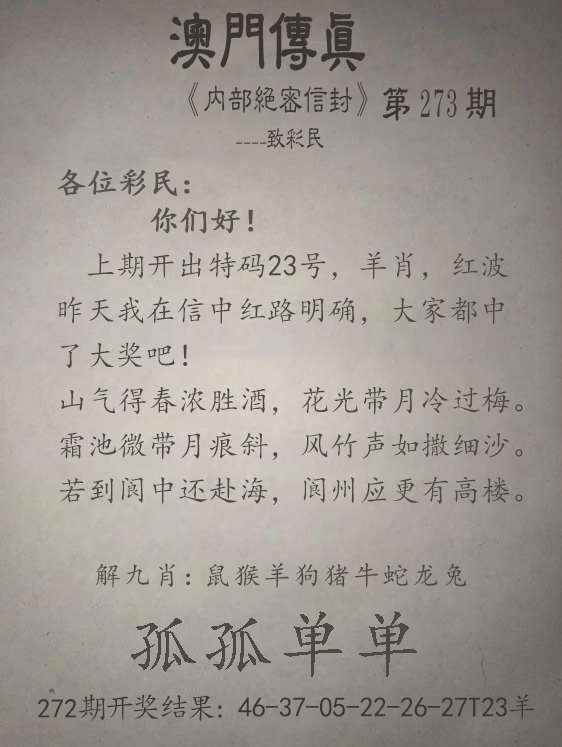 澳門傳眞
《内部絕密信封》第273期
----致彩民
各位彩民：
你们好！
上期开出特码23号，羊肖，红波
昨天我在信中红路明确，大家都中
了大奖吧！
山气得春浓胜酒，花光带月冷过梅。
霜池微带月痕斜，风竹声如撒细沙。
若到阆中还赴海，阆州应更有高楼。
解九肖：鼠猴羊狗猪牛蛇龙兔
孤孤单单
272期开奖结果：46-37-05-22-26-27T23羊